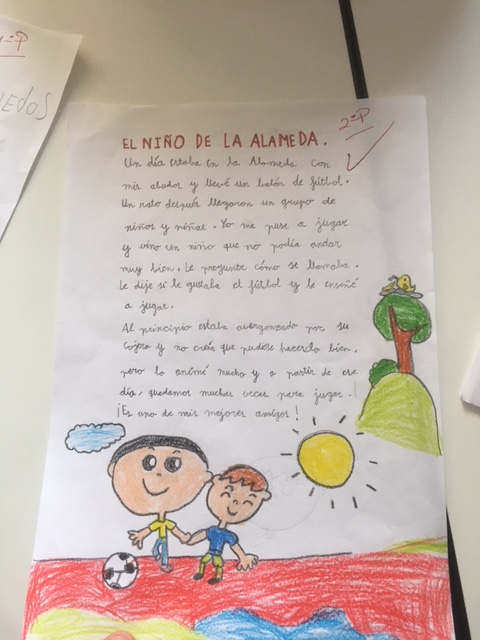 1ºP
EDOS
2ºP
EL NIÑO DE LA ALAMEDA.
Un día estaba en la Alameda con
mis abuelos y llevé un balón de fútbol.
Un rato después llegaron un grupo de
niños y niñas. Yo me puse a jugar
y vino un niño que no podía andar
muy bien. Le pregunte cómo se llamaba.
Le dije si le gustaba el fútbol y le enseñé
a jugar.
Al principio estaba avergonzado por su
cojera y no creía que pudiese hacerlo bien,
pero lo animé mucho y a partir de ese
día, quedamos muchas veces para jugar.
¡Es uno de mis mejores amigos!